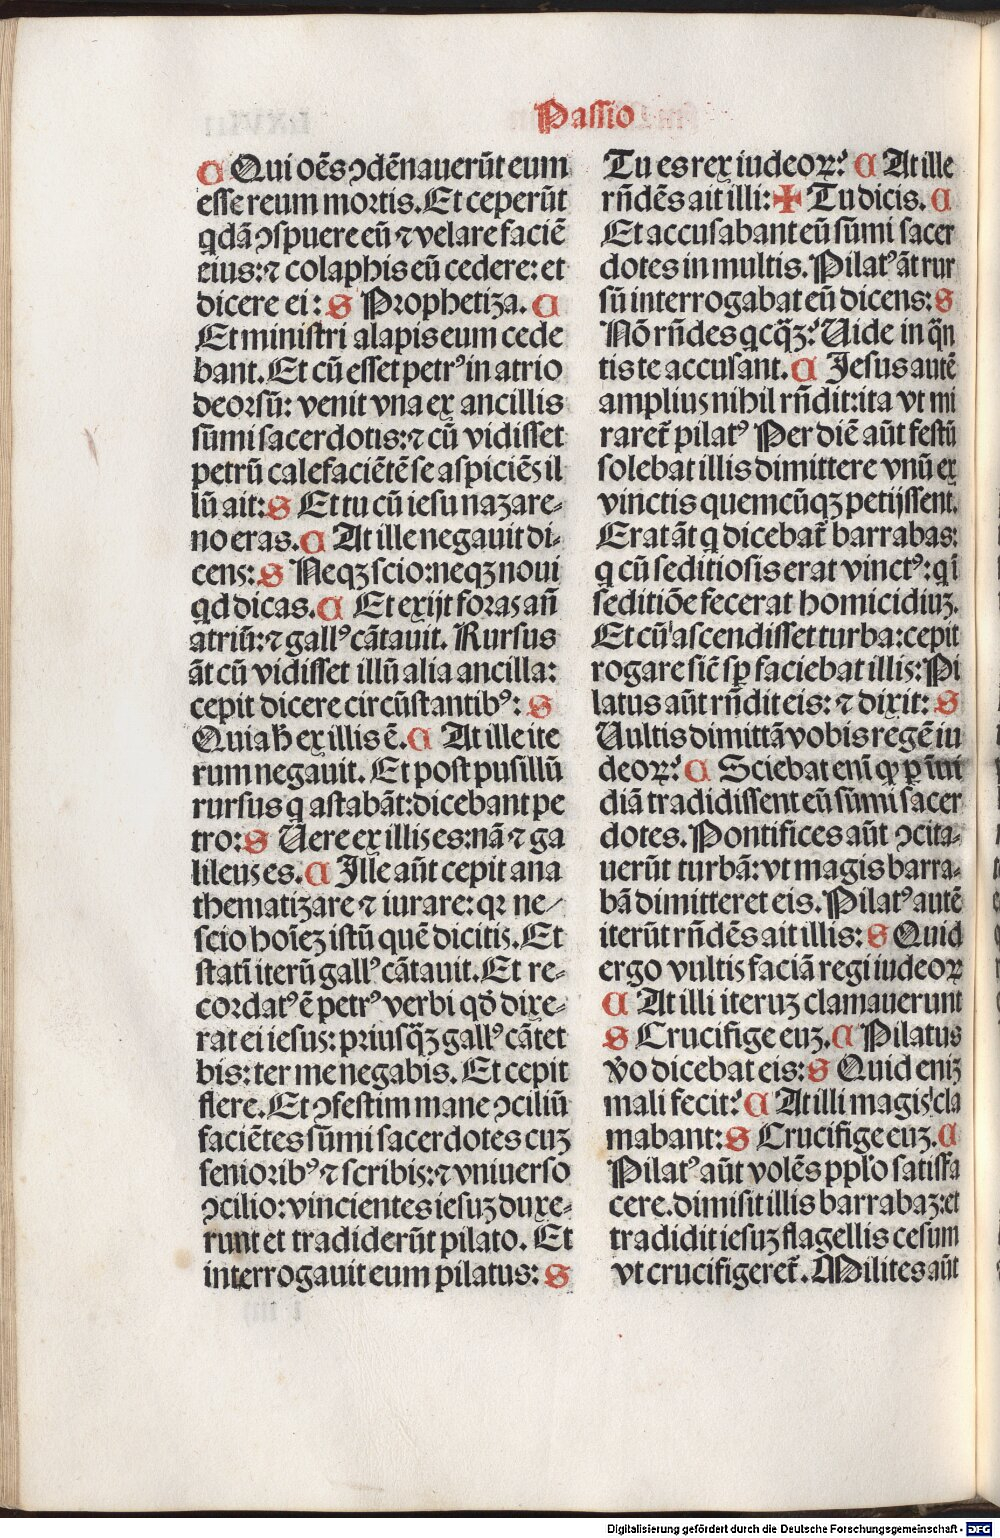 Passio
C Qui oẽs ↄdẽnauerũt eum
esse reum moꝛtis. Et ceperũt
qdã ↄspuere eũ ⁊ velare faciẽ
eius: ⁊ colaphis eũ cedere: et
dicere ei: S Prophetiza. C
Et ministri alapis eum cede
bant. Et cũ esset petrꝰ in atrio
deoꝛsũ: venit vna ex ancillis
sũmi sacerdotis: ⁊ cũ vidisset
petrũ calefaciẽtẽ se aspiciẽs il
lũ ait: S Et tu cũ iesu nazare⸗
no eras. C At ille negauit di⸗
cens: S Neqꝫ scio: neqꝫ noui
qd dicas. C Et exijt foꝛas añ
atriũ: ⁊ gallꝰ cãtauit. Rursus
ãt cũ vidisset illũ alia ancilla:
cepit dicere circũstantibꝰ: S
Quia ħ ex illis ẽ. C At ille ite
rum negauit. Et post pusillũ
rursus q astabãt: dicebant pe
tro: S Uere ex illis es: nã ⁊ ga
lileus es. C Ille aũt cepit ana
thematizare ⁊ iurare: qꝛ ne⸗
scio hoĩeꝫ istũ quẽ dicitis. Et
statĩ iterũ gallꝰ cãtauit. Et re⸗
coꝛdatꝰ ẽ petrꝰ verbi qđ dixe⸗
rat ei iesus: pꝛiusq̃ꝫ gallꝰ cãtet
bis: ter me negabis. Et cepit
flere. Et ↄfestim mane ↄciliũ
faciẽtes sũmi sacerdotes cuꝫ
senioribꝰ ⁊ scribis: ⁊ vniuerso
ↄcilio: vincientes iesuꝫ duxe⸗
runt et tradiderũt pilato. Et
interrogauit eum pilatus: S
Tu es rex iudeoꝝ? C At ille
rñdẽs ait illi: ✠ Tu dicis. C
Et accusabant eũ sũmi sacer
dotes in multis. Pilatꝰ ãt rur
sũ interrogabat eũ dicens: S
Nõ rñdes qcq̃ꝫ? Uide in q̃n
tis te accusant. C Jesus autẽ
amplius nihil rñdit: ita vt mi
raret̃ pilatꝰ Per diẽ aũt festũ
solebat illis dimittere vnũ ex
vinctis quemcũqꝫ petijssent.
Erat ãt q dicebat̃ barrabas:
q cũ seditiosis erat vinctꝰ: qĩ
seditiõe fecerat homicidiuꝫ.
Et cũ ascendisset turba: cepit
rogare sic̃ sꝑ faciebat illis: Pi
latus aũt rñdit eis: ⁊ dixit: S
Uultis dimittã vobis regẽ iu
deoꝝ? C Sciebat enĩ ꝙ ꝑ ĩui
diã tradidissent eũ sũmi sacer
dotes. Pontifices aũt ↄcita⸗
uerũt turbã: vt magis barra⸗
bã dimitteret eis. Pilatꝰ autẽ
iterũt rñdẽs ait illis: S Quid
ergo vultis faciã regi iudeoꝝ
C At illi iteruꝫ clamauerunt
S Crucifige euꝫ. C Pilatus
v̆o dicebat eis: S Quid eniꝫ
mali fecit? C At illi magis cla
mabant: S Crucifige euꝫ. C
Pilatꝰ aũt volẽs pplo satisfa
cere. dimisit illis barrabaꝫ: et
tradidit iesuꝫ flagellis cesum
vt crucifigeret̃. Milites aũt
Digitalisierung gefördert durch die Deutsche Forschungsgemeinschaft - DFG